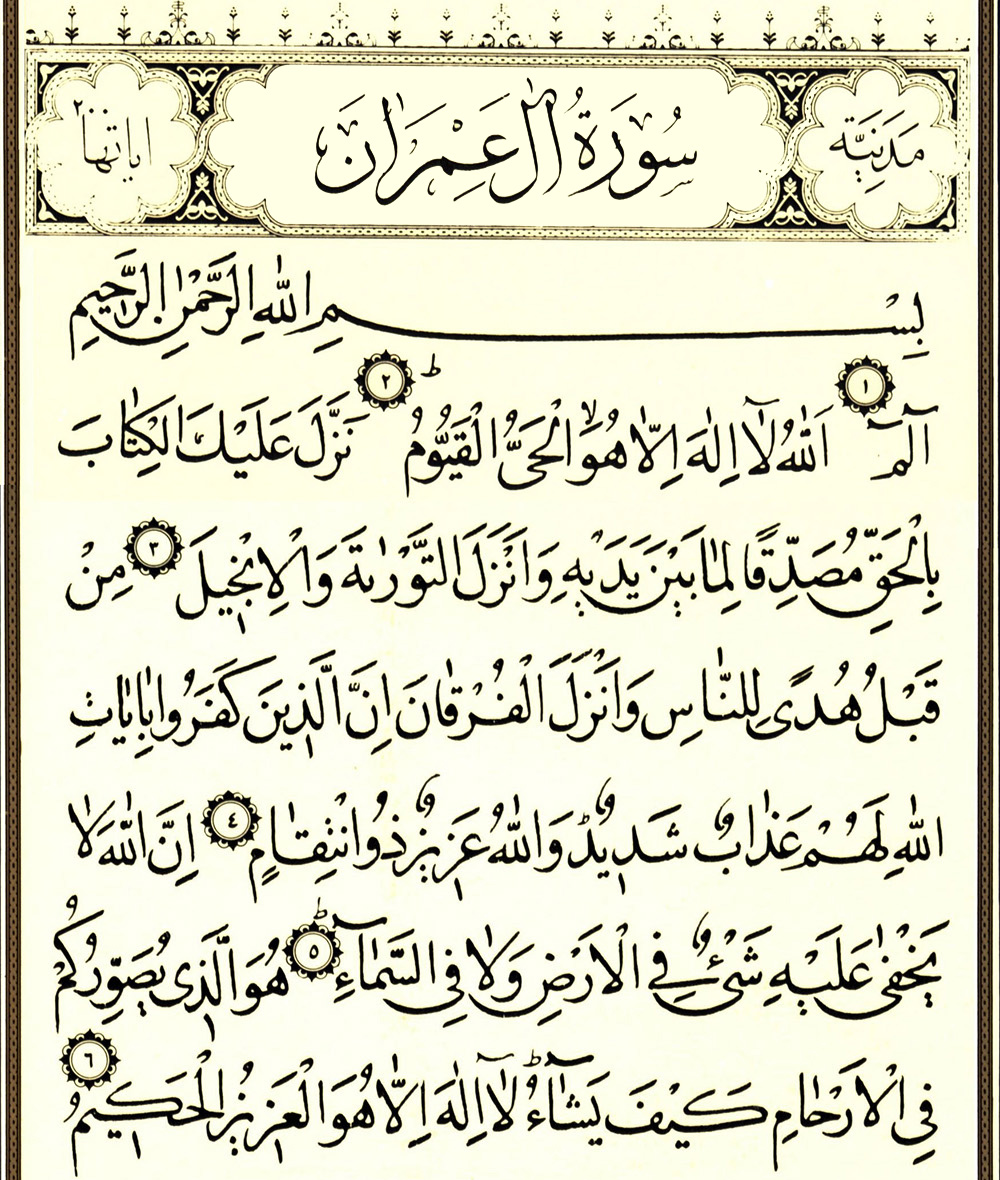 مَدَنِيَّة سُورَةُ اٰلِ عِمْرَانَ اياتها ٢٠٠
بِسْمِ اللّٰهِ الرَّحْمٰنِ الرَّحِيمِ
الٓمٓ ١ اَللّٰهُ لَآ اِلٰهَ اِلَّا هُوَ الْحَىُّ الْقَيُّومُ ط ٢ نَزَّلَ عَلَيْكَ الْكِتَابَ
بِالْحَقِّ مُصَدِّقًا لِمَا بَيْنَ يَدَيْهِ وَاَنْزَلَ التَّوْرٰيةَ وَالْاِنْجِيلَ ٣ مِنْ
قَبْلُ هُدًى لِلنَّاسِ وَاَنْزَلَ الْفُرْقَانَ اِنَّ الَّذِينَ كَفَرُوا بِاٰيَاتِ
اللّٰهِ لَهُمْ عَذَابٌ شَدِيدٌ وَاللّٰهُ عَزِيزٌ ذُو انْتِقَامٍ ٤ اِنَّ اللّٰهَ لَا
يَخْفٰى عَلَيْهِ شَىْءٌ فِى الْاَرْضِ وَلَا فِى السَّمَآءِ ط ٥ هُوَ الَّذِى يُصَوِّرُكُمْ
فِى الْاَرْحَامِ كَيْفَ يَشَآءُ ط لَآ اِلٰهَ اِلَّا هُوَ الْعَزِيزُ الْحَكِيمُ ٦